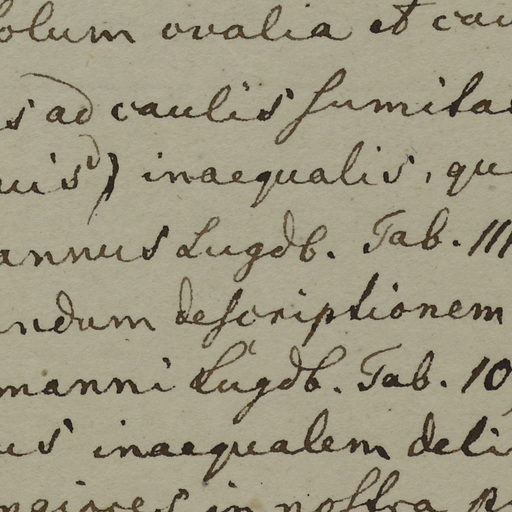 solum ovalia et cau
s ad caulis sumita
uis) inaequalis, qu
annus Lugdb. Tab. III
ndum descriptionem
manni Lugdb. Tab. 10
us inaequalem deli
in nostra